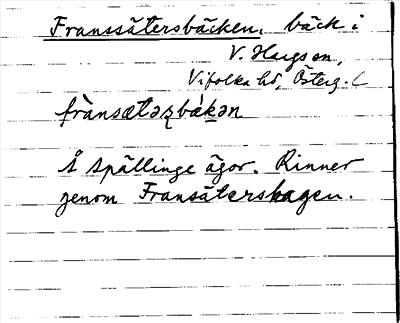 Franssätersbäcken, bäck i
V. Hargs sn,
Vifolka hd, Österg. l
frànsætəʂbækən
Å Spällinge ägor. Rinner
genom Fransätershagen.